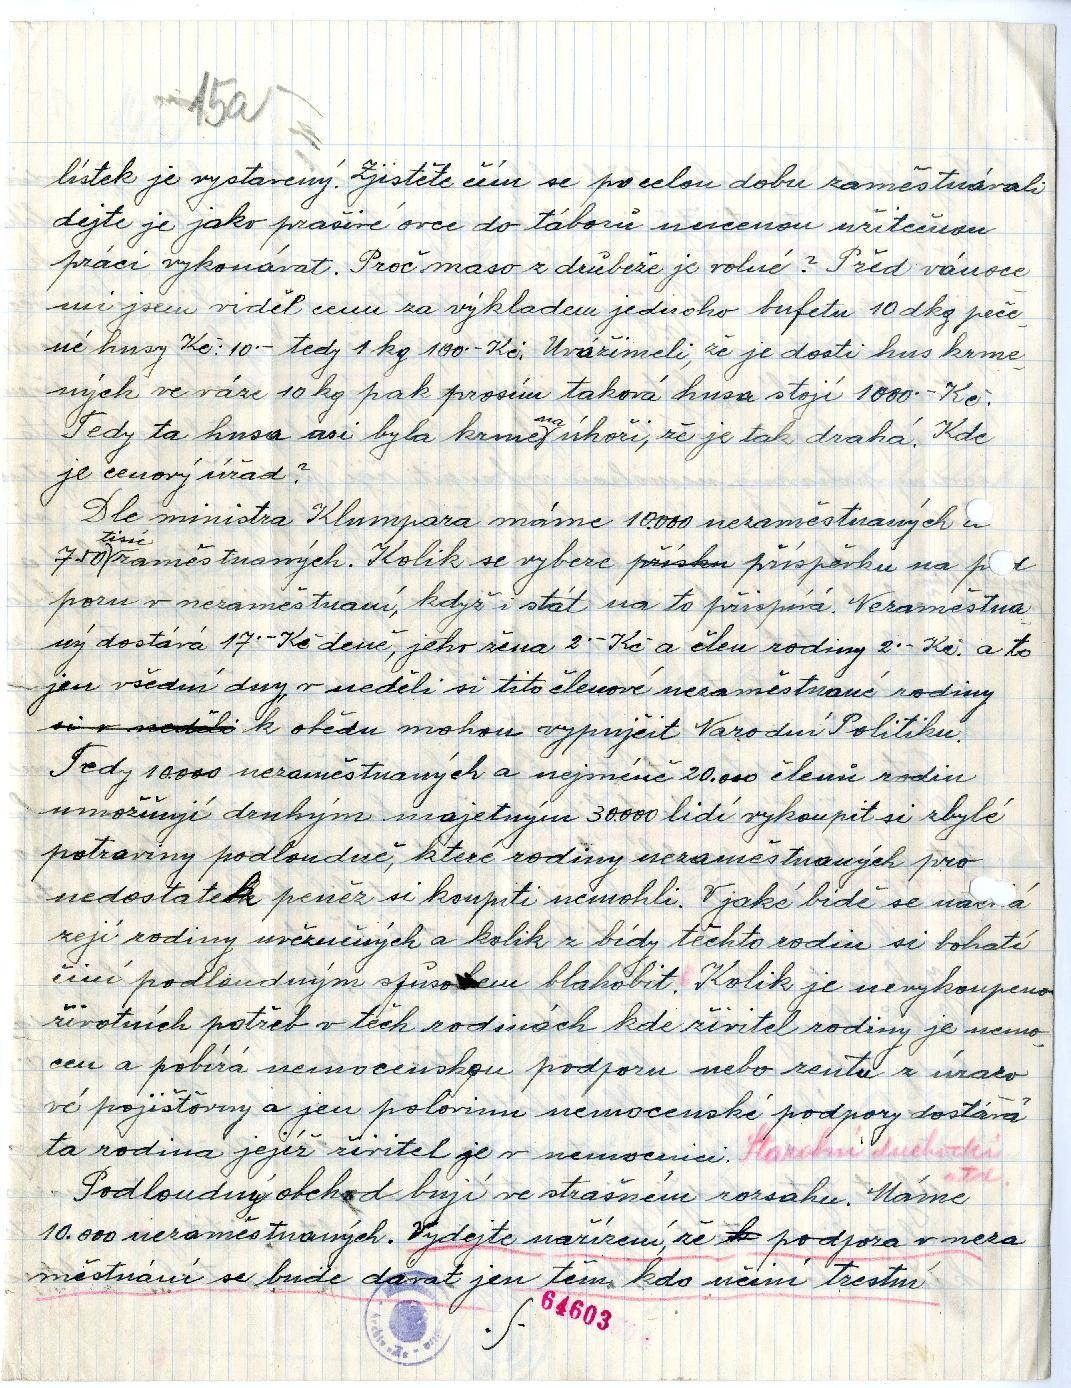 15a
lístek je vystavený. Zjistěte čím se po celou dobu zaměstnávali
dejte je jako prašivé ovce do táborů necenou užitečnou
práci vykonávat. Proč maso z drůbeže je volné? Před vánoce-
mi jsem viděl cenu za výkladem jednoho bufetu 10 dkg peče-
né husy Kč: 10.- tedy 1 kg 100.- Kč. Uvážímeli, že je dosti hus krme-
ných ve váze 10 kg pak prosím taková husa stojí 1000.- Kč.
Tedy ta husa asi byla krmena úhoři, že je tak drahá. Kde
je cenový úřad?
Dle ministra Klumpara máme 10.000 nezaměstnaných a
750 tisíc zaměstnaných. Kolik se vybere přísku příspěvku na pod
poru v nezaměstnaní, když i stát na to přispívá. Nezaměstna-
ný dostává 17.- Kč deně, jeho žena 2.- Kč a člen rodiny 2.- Kč. a to
jen všední dny, v neděli si tito členové nezaměstnané rodiny
si v neděli k obědu mohou vypujčit Narodní Politiku.
Tedy 10.000 nezaměstnaných a nejméně 20.000 členů rodin
umožňují druhým majetným 30.000 lidí vykoupit si zbylé
potraviny podloudně, které rodiny nezaměstnaných pro
nedostatek peněz si koupiti nemohli. V jaké bídě se nachá
zejí rodiny uvězněných a kolik z bídy těchto rodin si bohatí
činí podloudným spůsobem blahobit. Kolik je nevykoupeno
životních potřeb v těch rodinách kde živitel rodiny je nemo-
cen a pobírá nemocenskou podporu nebo rentu z úrazo
vé pojišťovny a jen polovinu nemocenské podpory dostává
ta rodina jejíž živitel je v nemocnici. Starobní duchodci
atd.
Podloudný obchod bují ve strašném rozsahu. Máme
10.000 nezaměstnaných. Vydejte nařízení, že podpora v neza
městnání se bude dávat jen těm, kdo učiní trestní
64603